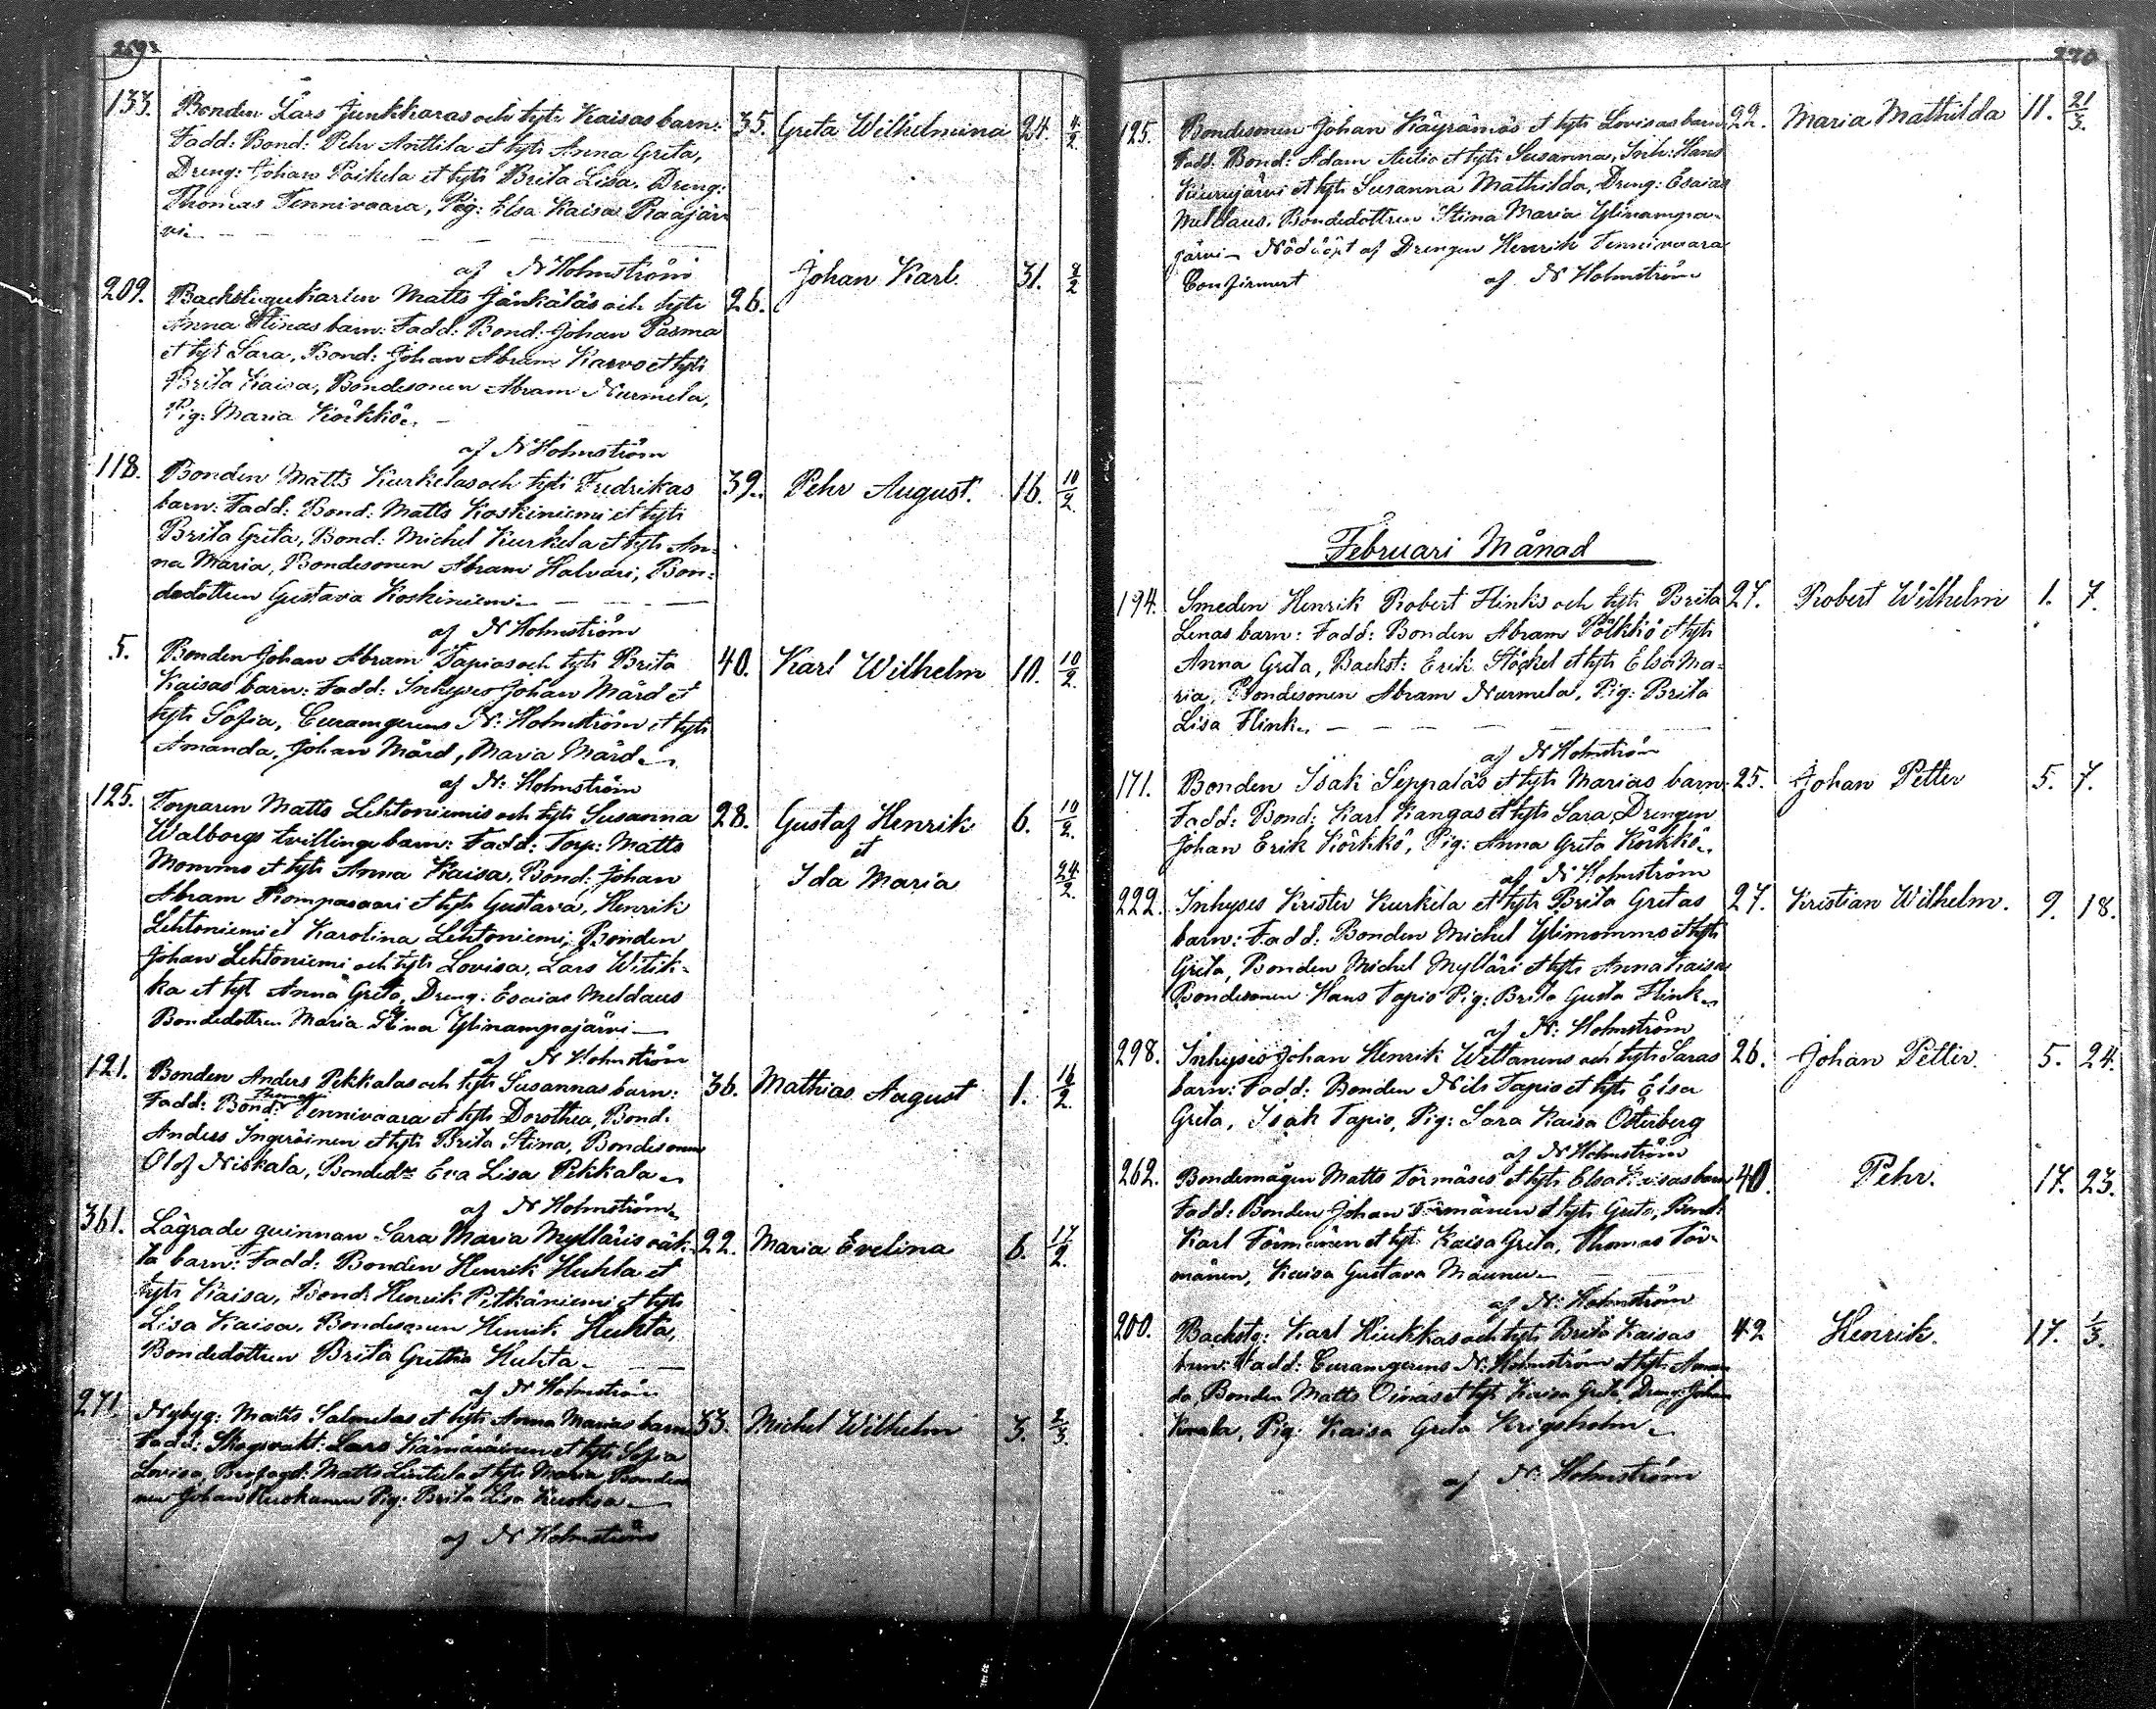 269.
133. Bonden Lars Junkkaras och hstr Kaisas barn: 35. Greta Wilhelmina 24. 4/2
Fadd: Bond: Pehr Anttila et hstr Anna Greta,
Dreng: Johan Paikela et hstr Brita Lisa. Dreng:
Thomas Tennivaara, Pig: Elsa Kaisa Raajär-
vi.
af N Holmström
209. Backstugukarlen Matts Jänkäläs och hstr 26. Johan Karl. 31. 8/2
Anna Stinas barn: Fadd: Bond: Johan Pasma
et hstr Sara, Bond: Johan Abram Karvo et hstr
Brita Kaisa, Bondesonen Abram Nurmela,
Pig: Maria Körkkö.
af N Holmström
118. Bonden Matts Kurkelas och hstr Fredrikas 39. Pehr August. 16. 10/2
barn: Fadd: Bond: Matts Koskiniemi et hstr
Brita Greta, Bond: Michel Kurkela et hstr An-
na Maria, Bondesonen Abram Halvari, Bon-
dedottren Gustava Koskiniemi.
af N Holmström
5. Bonden Johan Abram Tapios och hstr Brita 40. Karl Wilhelm 10. 10/2
Kaisas barn: Fadd: Inhyses Johan Mård et
hstr Sofia, Curamgerens N: Holmström et hstr
Amanda, Johan Mård, Maria Mård.
af N: Holmström
125. Torparen Matts Lehtoniemis och hstr Susanna 28. Gustaf Henrik 6. 10/2
Walborgs tvillingebarn: Fadd: Torp: Matts et
Mommo et hstr Anna Kaisa, Bond: Johan Ida Maria 24/2
Abram Kompasaari et hstr Gustava, Henrik
Lehtoniemi et Karolina Lehtoniemi, Bonden
Johan Lehtoniemi och hstr Lovisa, Lars Witik-
ka et hst Anna Greta, Dreng: Esaias Meldaus
Bondedottren Maria Stina Ylinampajärvi
af N Holmström
121. Bonden Anders Pekkalas och hstr Susannas barn: 36. Mathias August 1. 16/2
Fadd: Bond: Thomas Tennivaara et hstr Dorothea, Bond:
Anders Ingeröinen et hstr Brita Stina, Bondesonen
Olof Niskala, Bondedtr Eva Lisa Pekkala
af N Holmström
361. Lägrade quinnan Sara Maria Mylläris oäk- 22. Maria Evelina 6. 17/2
ta barn: Fadd: Bonden Henrik Huhta et
hstr Kaisa, Bond: Henrik Pitkäniemi et hstr
Lisa Kaisa, Bondesonen Henrik Huhta,
Bondedottren Brita Gretha Huhta
af N Holmström
271. Nybyg: Matts Salmelas et hstr Anna Marias barn 33. Michel Wilhelm 3. 2/3
Fadd: Skogsvakt: Lars Kämäräinen et hstr Sofia
Lovisa, Matts Lintula et hstr Maria, Bondeso-
nen Johan Pig: Brita Lisa Kuoksa
af N Holmström
270
125. Bondesonen Johan Käyrämös et hstr Lovisas barn 22. Maria Mathilda 11. 21/3.
Fadd: Bond: Adam Autio et hstr Susanna, Inh: Hans
Kuurujärvi et hstr Susanna Mathilda, Dreng: Esaias
Meldaus. Bondedottren Stina Maria Ylinampa-
järvi Nöddöpt af Drengen Henrik Tennivaara
Confirmert af N Holmström
Februari Månad
194. Smeden Henrik Robert Flinks och hstr Brita 27. Robert Wilhelm 1. 7.
Lenas barn: Fadd: Bonden Abram Pölkkö et hstr
Anna Greta, Backst: Erik Stöckel et hstr Elsa Ma-
ria, Bondesonen Abram Nurmela, Pig: Brita
Lisa Flink.
af N Holmström
171. Bonden Isak Seppäläs et hstr Marias barn 25. Johan Petter 5. 7.
Fadd: Bond: Karl Kangas et hstr Sara, Drengen
Johan Erik Körkkö, Pig: Anna Greta Körkkö.
af N Holmström
222. Inhyses Krister Kurkela et hstr Brita Gretas 27. Kristian Wilhelm. 9. 18.
barn: Fadd: Bonden Michel Ylimommo et hstr
Greta, Bonden Michel Mylläri et hstr Anna Kaisa
Bondesonen Hans Tapio Pig: Brita Gusta Flink
af N: Holmström
298. Inhyses Johan Henrik Wettanens och hstr Saras 26. Johan Petter. 5. 24.
barn: Fadd: Bonden Nils Tapio et hstr Elsa
Greta, Isak Tapio, Pig: Sara Kaisa Österberg
af N Holmström
262. Bondemågen Matts Törmäses et hstr Elsa Kaisas barn 40. Pehr. 17. 23.
Fadd: Bonden Johan Törmänen et hstr Greta, Bond:
Karl Törmänen et hst: Kaisa Greta, Thomas Tör-
mänen, Kaisa Gustava Maunu
af N: Holmström
200. Backstg: Karl Hiukkas och hstr Brita Kaisas 42 Henrik. 17. 1/3.
barn: Fadd: Curamgerens N: Holmström et hstr Aman-
da, Bonden Matts Oinas et hstr Kaisa Greta, Dreng: Johan
Pig: Kaisa Greta Krigsholm
af N: Holmström